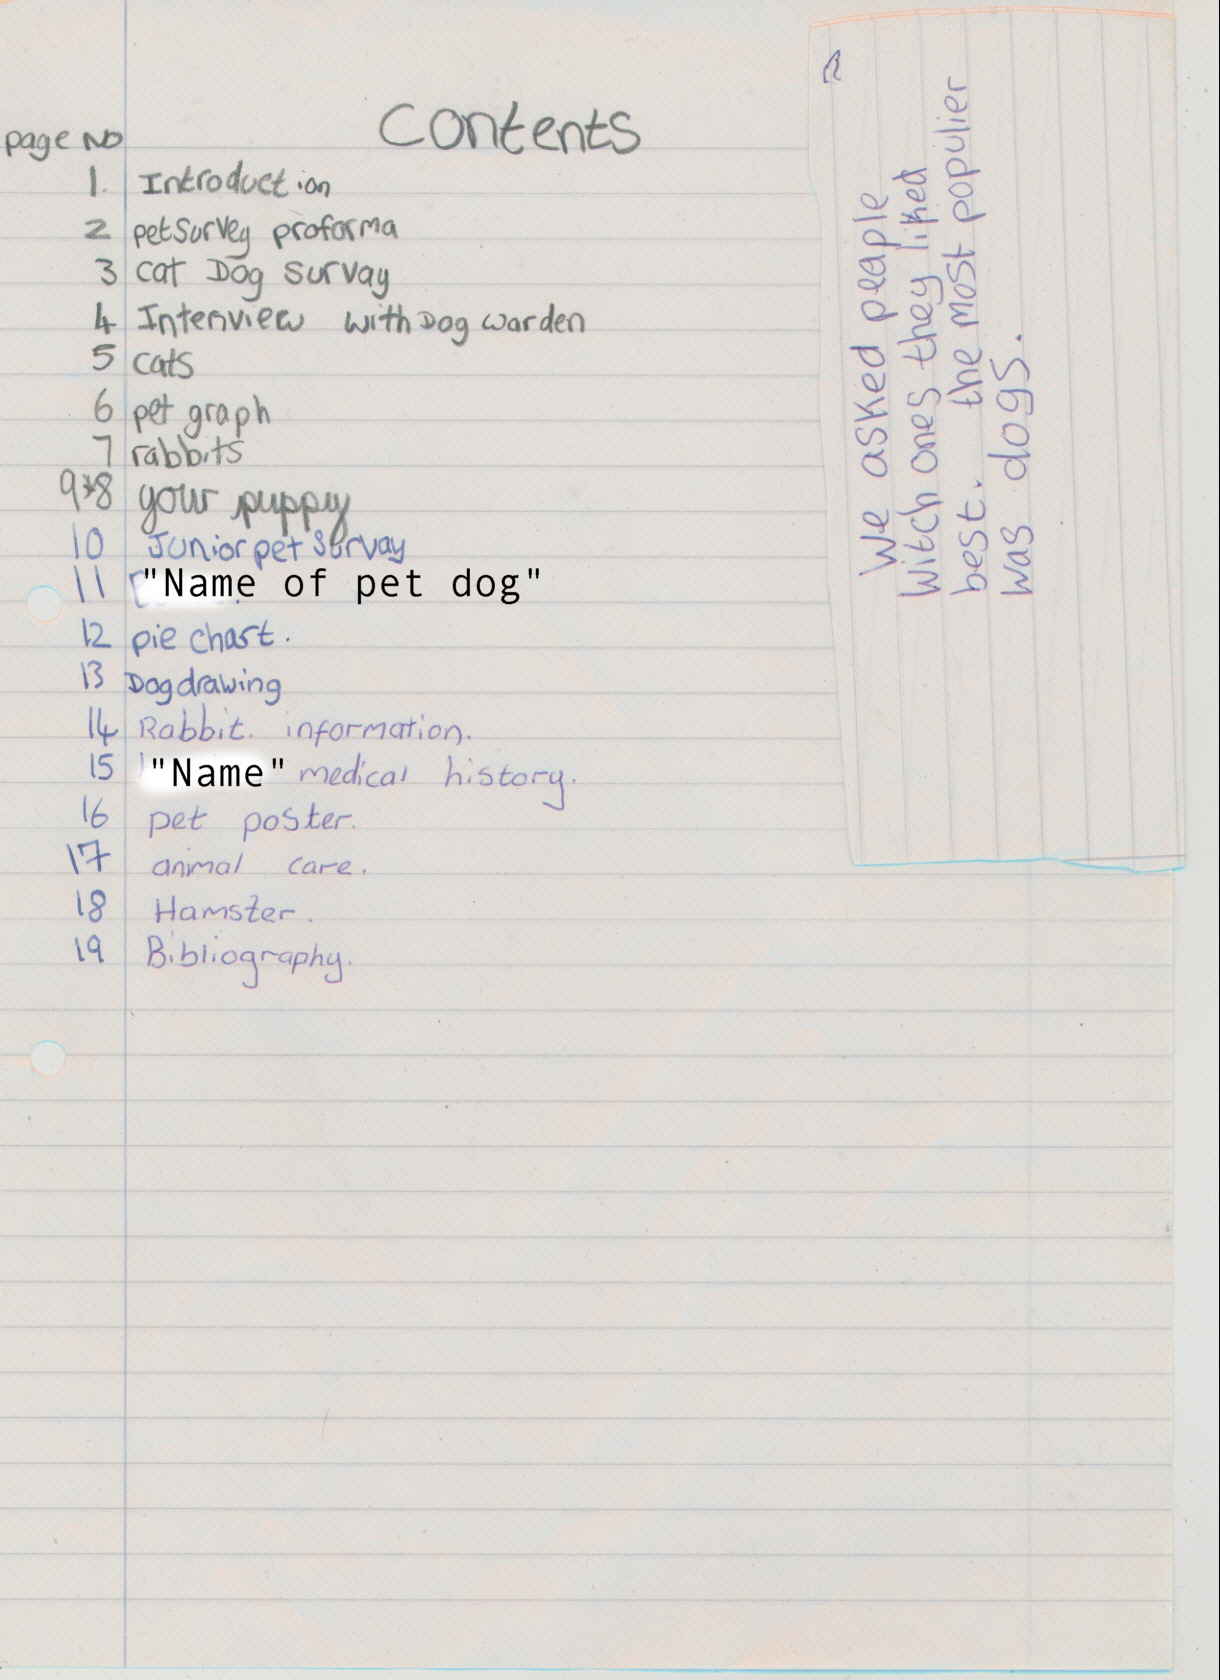 Contents
page No
1. Introduction
2 pet Survey proforma
3 cat Dog survay
4 Interview with Dog warden
5 cats
6 pet graph
7 rabbits
9+8 your puppy
10 Junior pet Survay
11 "Name of pet dog"
12 pie chart.
13 Dog drawing
14 Rabbit. information.
15 "Name" medical history.
16 pet poster.
17 animal care.
18 Hamster.
19 Bibliography.
2
We asked peaple
witch ones they liked
best. the most populier
was dogs.